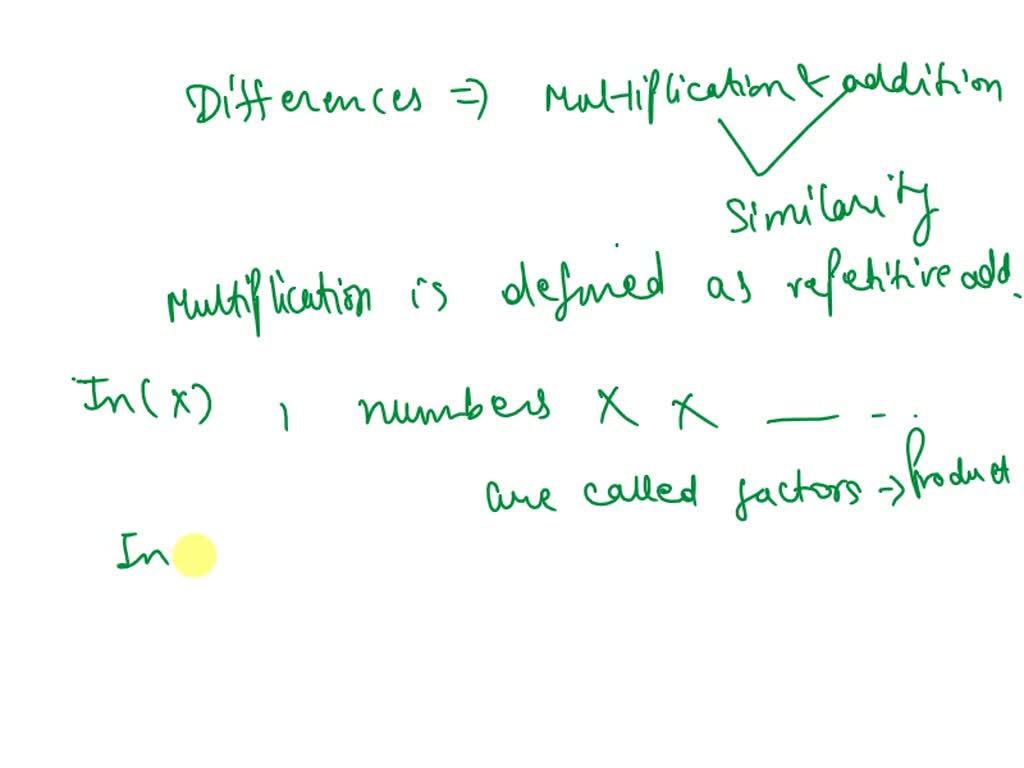 Differences ⇒ Multiplication & addition
Similarity
Multiplication is defined as repetitive add.
In(x) , numbers X X — - .
are called factors → Product
In